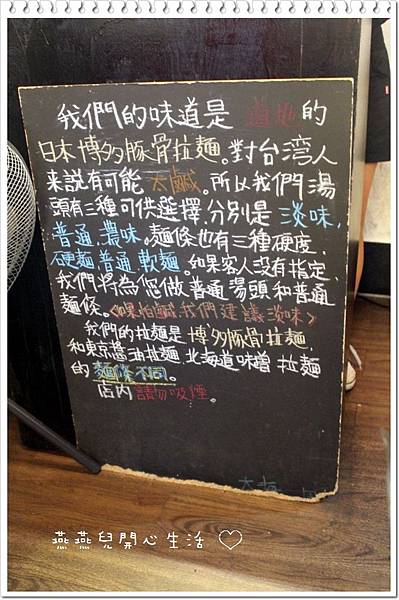 我們的味道是 道地的
日本博多豚骨拉麵。對台湾人
来説有可能 太鹹。所以我們湯
頭有三種可供選擇,分別是 淡味,
普通,濃味。麵條也有三種硬度,
硬麵普通軟麵。如果客人没有指定,
我們將為您做普通湯頭和普通
麵條。<如果怕鹹我們建議淡味>
我們的拉麵是博多豚骨拉麵,
和東京醬油拉麵,北海道味噌拉麵
的 麵條不同。
店内請勿吸煙。
燕燕兒開心生活 ♡